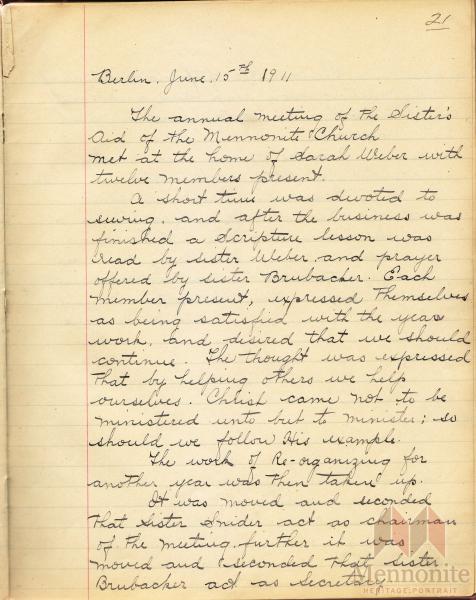 21
Berlin, June, 15th 1911
The annual meeting of the Sister's
Aid of the Mennonite Church
met at the home of Sarah Weber with
twelve members present.
A short time was devoted to
sewing, and after the business was
finished a Scripture lesson was
read by sister Weber and prayer
offered by sister Brubacker. Each
member present, expressed themselves
as being satisfied with the years
work, and desired that we should
continue. The thought was expressed
that by helping others we help
ourselves. Christ came not to be
ministered unto but to minister; so
should we follow His example.
The work of Re-organizing for
another year was then taken up.
It was moved and seconded
that Sister Snider act as chairman
of the meeting, further it was
moved and seconded that Sister
Brubacker act as Secretary.
Mennonite
HERITAGE PORTRAIT